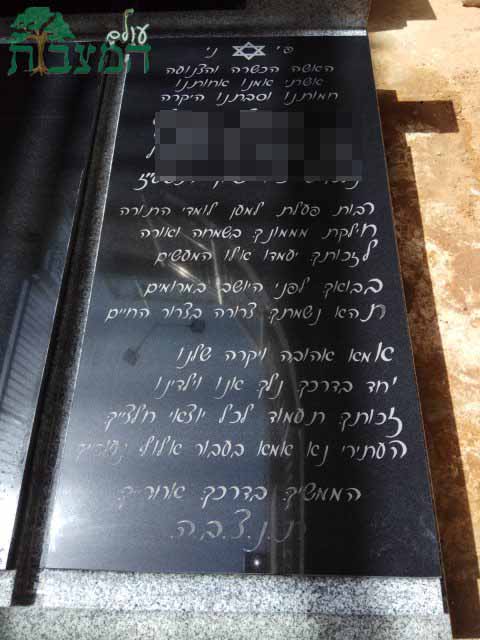 עולם
המצבות
פ' נ'
האשה הכשרה והצנועה
אשתי אמנו אחותנו
חמותנו וסבתנו היקרה
רבות פעלת למען לומדי התורה
חילקת מממונך בשמחה ואורה
לזכותך יעמדו אילו המעשים
בבואך לפני היושב במרומים
ת הא נשמתך צרורה בצרור החיים
אמא אהובה ויקרה שלנו
יחד בדרכך נלך אנו וילדינו
זכותך תעמוד לכל יוצאי חלציך
העתירי נא אמא בעבור אילו
הממשיך בדרכך
ת.נ.צ.ב.ה.